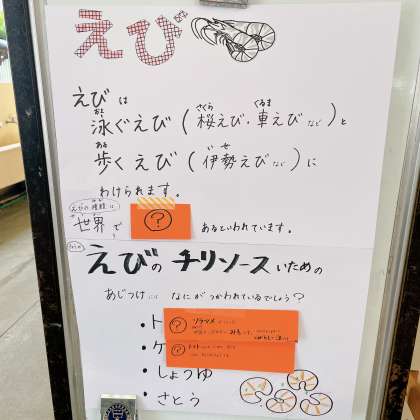 えび
えびは
泳ぐえび(桜えび・車えびなど)と
歩くえび(伊勢えびなど)に
わけられます。
えびの種類は
世界で ? あるといわれています。
えびのチリソースいための
あじつけには なにがつかわれているでしょう?
・ト
? ソラマメ
・ケ
?
・しょうゆ
・さとう